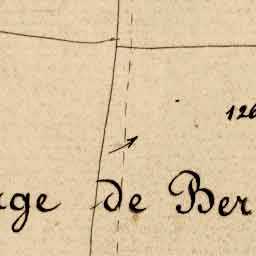 126
ge de Ber